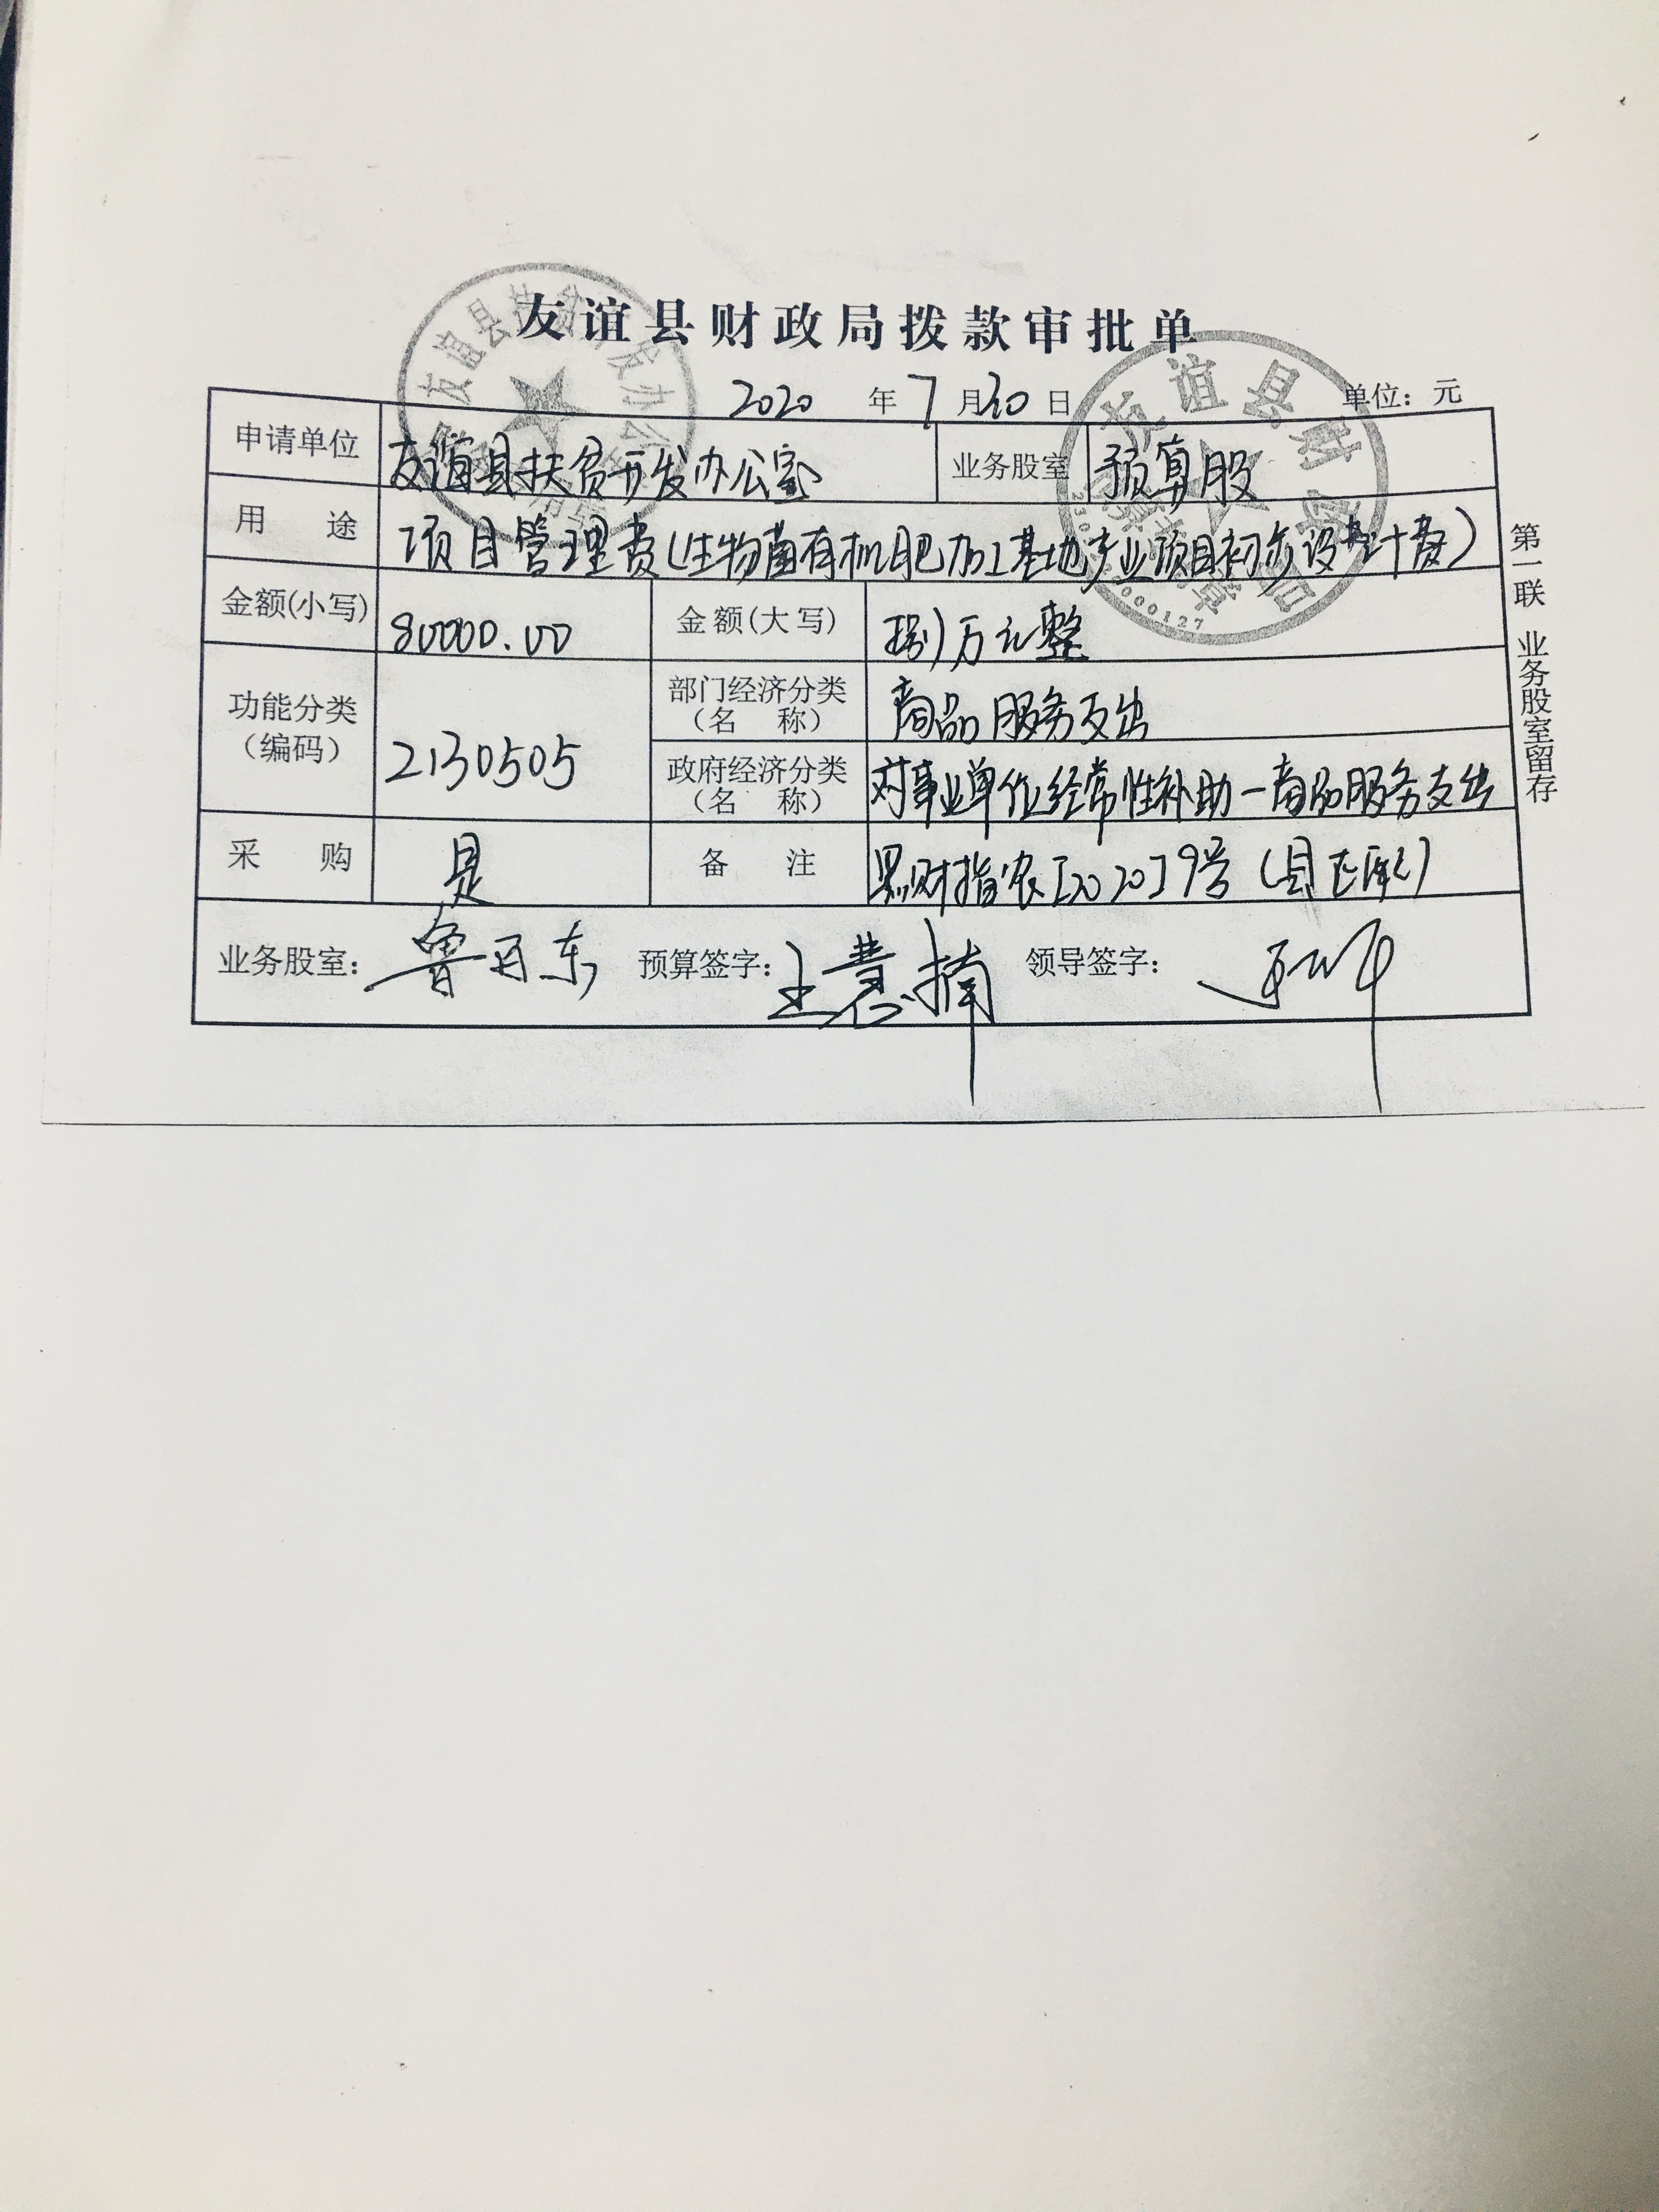 友谊县财政局拨款审批单
2020 年 7 月 30 日 单位：元
申请单位 友谊县扶贫开发办公室 业务股室 预算股
用 途 项目管理费(生物菌有机肥加工基地产业项目初步设计费)
金额(小写) 80000.00 金额(大写) 捌万元整
功能分类（编码） 2130505 部门经济分类（名 称） 商品服务支出
政府经济分类（名 称） 对事业单位经常性补助－商品服务支出
采 购 是 备 注 黑财指农[2020]9号
业务股室： 预算签字：王慧楠 领导签字：
第一联 业务股室留存